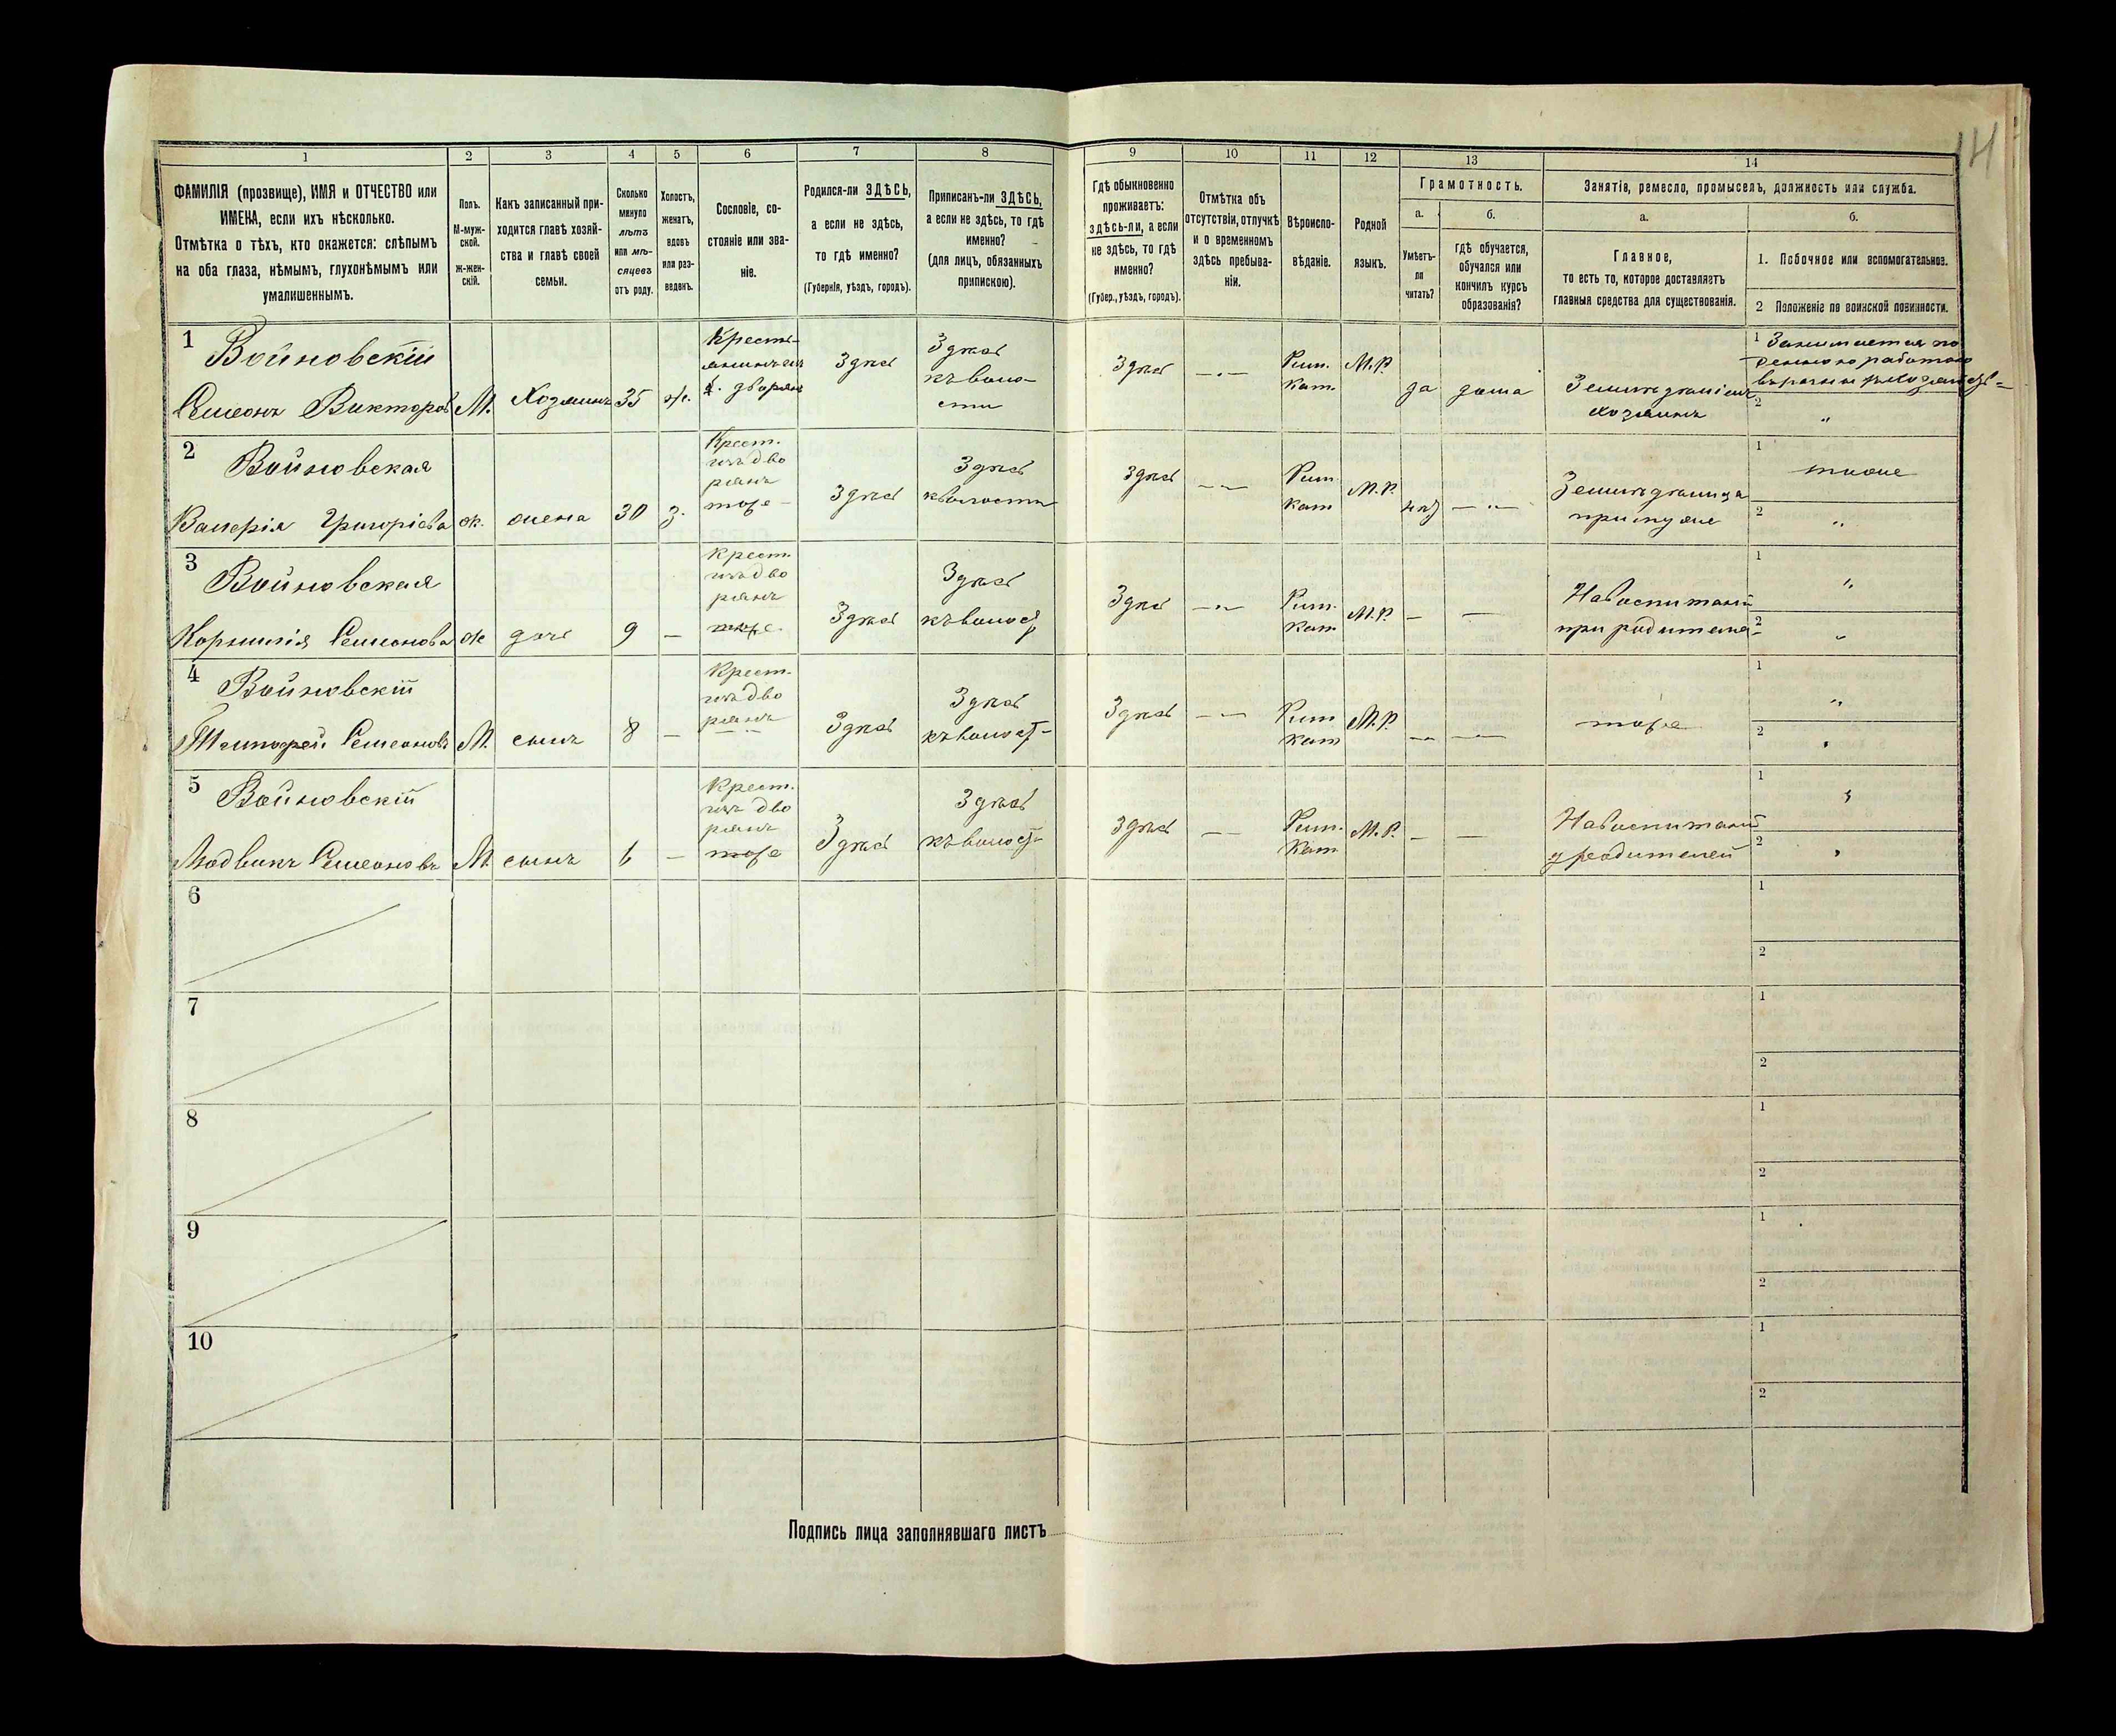 14
1 2 3 4 5 6 7 8 9 10 11 12 13 14
ФАМИЛІЯ (прозвище), ИМЯ и ОТЧЕСТВО или
ИМЕНА, если ихъ нѣсколько.
Отмѣтка о тѣхъ, кто окажется: слѣпымъ
на оба глаза, нѣмымъ, глухонѣмымъ или
умалишеннымъ.
Полъ.
М-муж-
ской.
ж-жен-
скій.
Какъ записанный при-
ходится главѣ хозяй-
ства и главѣ своей
семьи.
Сколько
минуло
лѣтъ
или мѣ-
сяцевъ
отъ роду.
Холостъ,
женатъ,
вдовъ
или раз-
веденъ.
Сословіе, со-
стояніе или зва-
ніе.
Родился-ли ЗДѢСЬ,
а если не здѣсь,
то гдѣ именно?
(Губернія, уѣздъ, городъ).
Приписанъ-ли ЗДѢСЬ,
а если не здѣсь, то гдѣ
именно?
(для лицъ, обязанныхъ
припискою).
Гдѣ обыкновенно
проживаетъ:
здѣсь-ли, а если
не здѣсь, то гдѣ
именно?
(Губер., уѣздъ, городъ).
Отмѣтка объ
отсутствіи, отлучкѣ
и о временномъ
здѣсь пребыва-
ніи.
Вѣроиспо-
вѣданіе.
Родной
языкъ.
Грамотность.
а.
Умѣетъ-
ли
читать?
б.
гдѣ обучается,
обучался или
кончилъ курсъ
образованія?
Занятіе, ремесло, промыселъ, должность или служба.
а.
Главное,
то есть то, которое доставляетъ
главныя средства для существованія.
б.
1. Побочное или вспомогательное.
2 Положеніе по воинской повинности.
1 Войновскій
Семеонъ Викторовъ М. Хозяинъ 35 ж.
Крестьянинъ изъ дворянъ
Здѣсь
Здѣсь
къ воло-
сти
Здѣсь
Рим.
кат.
М.Р.
да дома
Земледѣлiецъ
хозяинъ
1 Занимается по
2 "
2 Войновская
Валерія Григорієва ж. жена 30 з.
Крест.
изъ дво
рянъ
тоже
Здѣсь
Здѣсь
къ волости
Здѣсь
Рим
кат
М.Р.
нѣт
Земледѣлица
при мужѣ
1 тоже
2 "
3 Войновская
Корнилія Семеонова ж дочь 9 —
Крест.
изъ дво
рянъ
тоже
Здѣсь
Здѣсь
къ волост
Здѣсь
Рим.
Кат
М.Р. — —
На воспитаніи
при родителяхъ
1 "
2 "
4 Войновскій
Семеоновъ М. сынъ 8 —
Крест.
изъ дво
рянъ
Здѣсь
Здѣсь
къ волост
Здѣсь
Рим
кат
М.Р. — —
тоже
1 "
2 "
5 Войновскій
Людвикъ Семеоновъ М. сынъ 6 —
Крест.
изъ дво
рянъ
тоже
Здѣсь
Здѣсь
къ волост
Здѣсь
Рим.
Кат
М.Р. — —
На воспитаніи
у родителей
1 "
2 "
6 1
2
7 1
2
8 1
2
9 1
2
10 1
2
Подпись лица заполнявшаго листъ